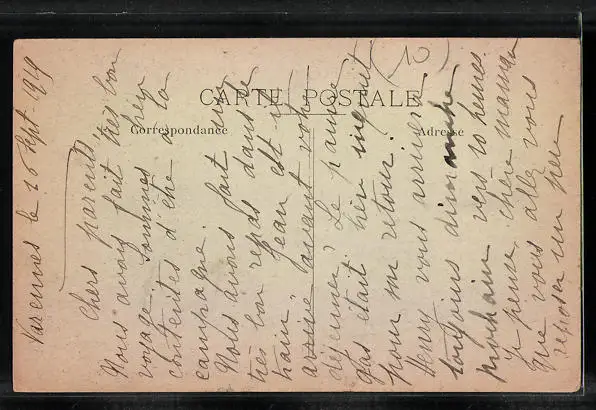 CARTE POSTALE
Correspondance
Adresse
Varennes le 16 Sept. 1919
Chers parents
Nous avons fait très bon
voyage sommes
contentes d'être à la
campagne.
Nous avons fait un
très bon repas dans le
train. Jean est
arrivé avant votre
déjeuner. Le pauvre
gas était bien inquiet
pour me retour.
Henry vous arrivera
toujours dimanche
prochain vers 10 heures.
Je pense chère maman
que vous allez vous
reposer un peu